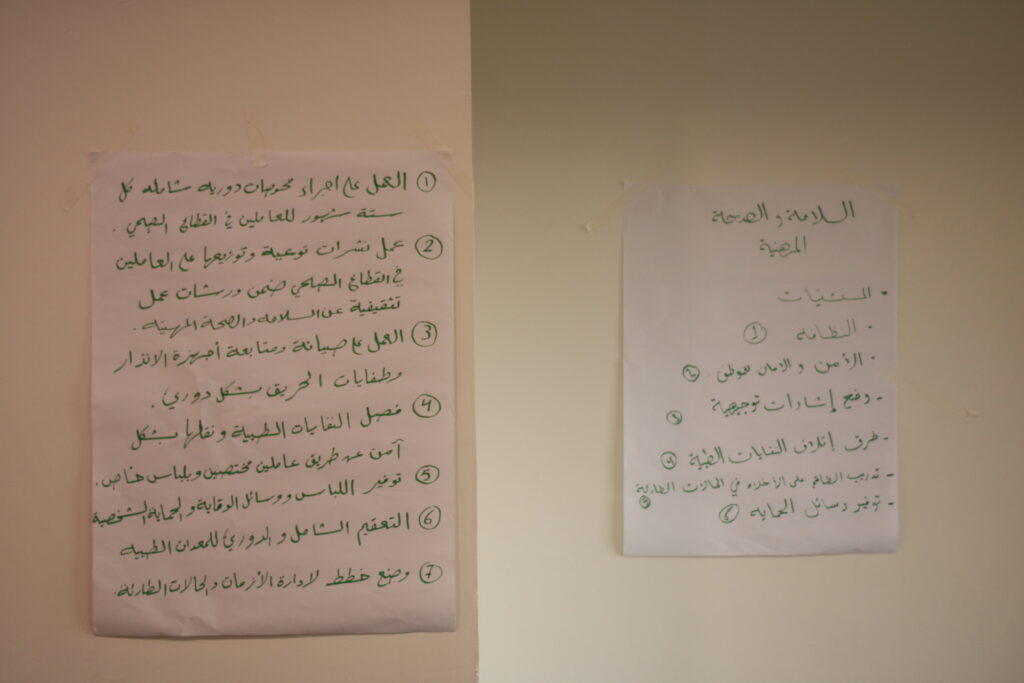 ① العمل على اجراء فحوصات دورية شامله كل
ستة شهور للعاملين في القطاع الصحي .
② عمل نشرات توعية وتوزيعها على العاملين
في القطاع الصحي ضمن ورشات عمل
تثقيفية عن السلامه والصحة المهنيه .
③ العمل على صيانة ومتابعة أجهزة الانذار
وطفايات الحريق بشكل دوري .
④ فصل النفايات الطبية ونقلها بشكل
آمن عن طريق عاملين مختصين وبلباس خاص .
⑤ توفير اللباس ووسائل الوقاية والحماية الشخصية
⑥ التعقيم الشامل والدوري للمعدات الطبيه
⑦ وضع خطط لادارة الأزمات والحالات الطارئة .
السلامة و الصحة
المهنية
• المستشفيات
- النظافه ①
- الأمن و الامان للموظف . ②
- وضع إشارات توجيهية ③
- طرق إتلاف النفايات الطبية ④
- تدريب الطاقم على الاخلاء في الحالات الطارئة ⑤
- توفير وسائل الحمايه ⑥